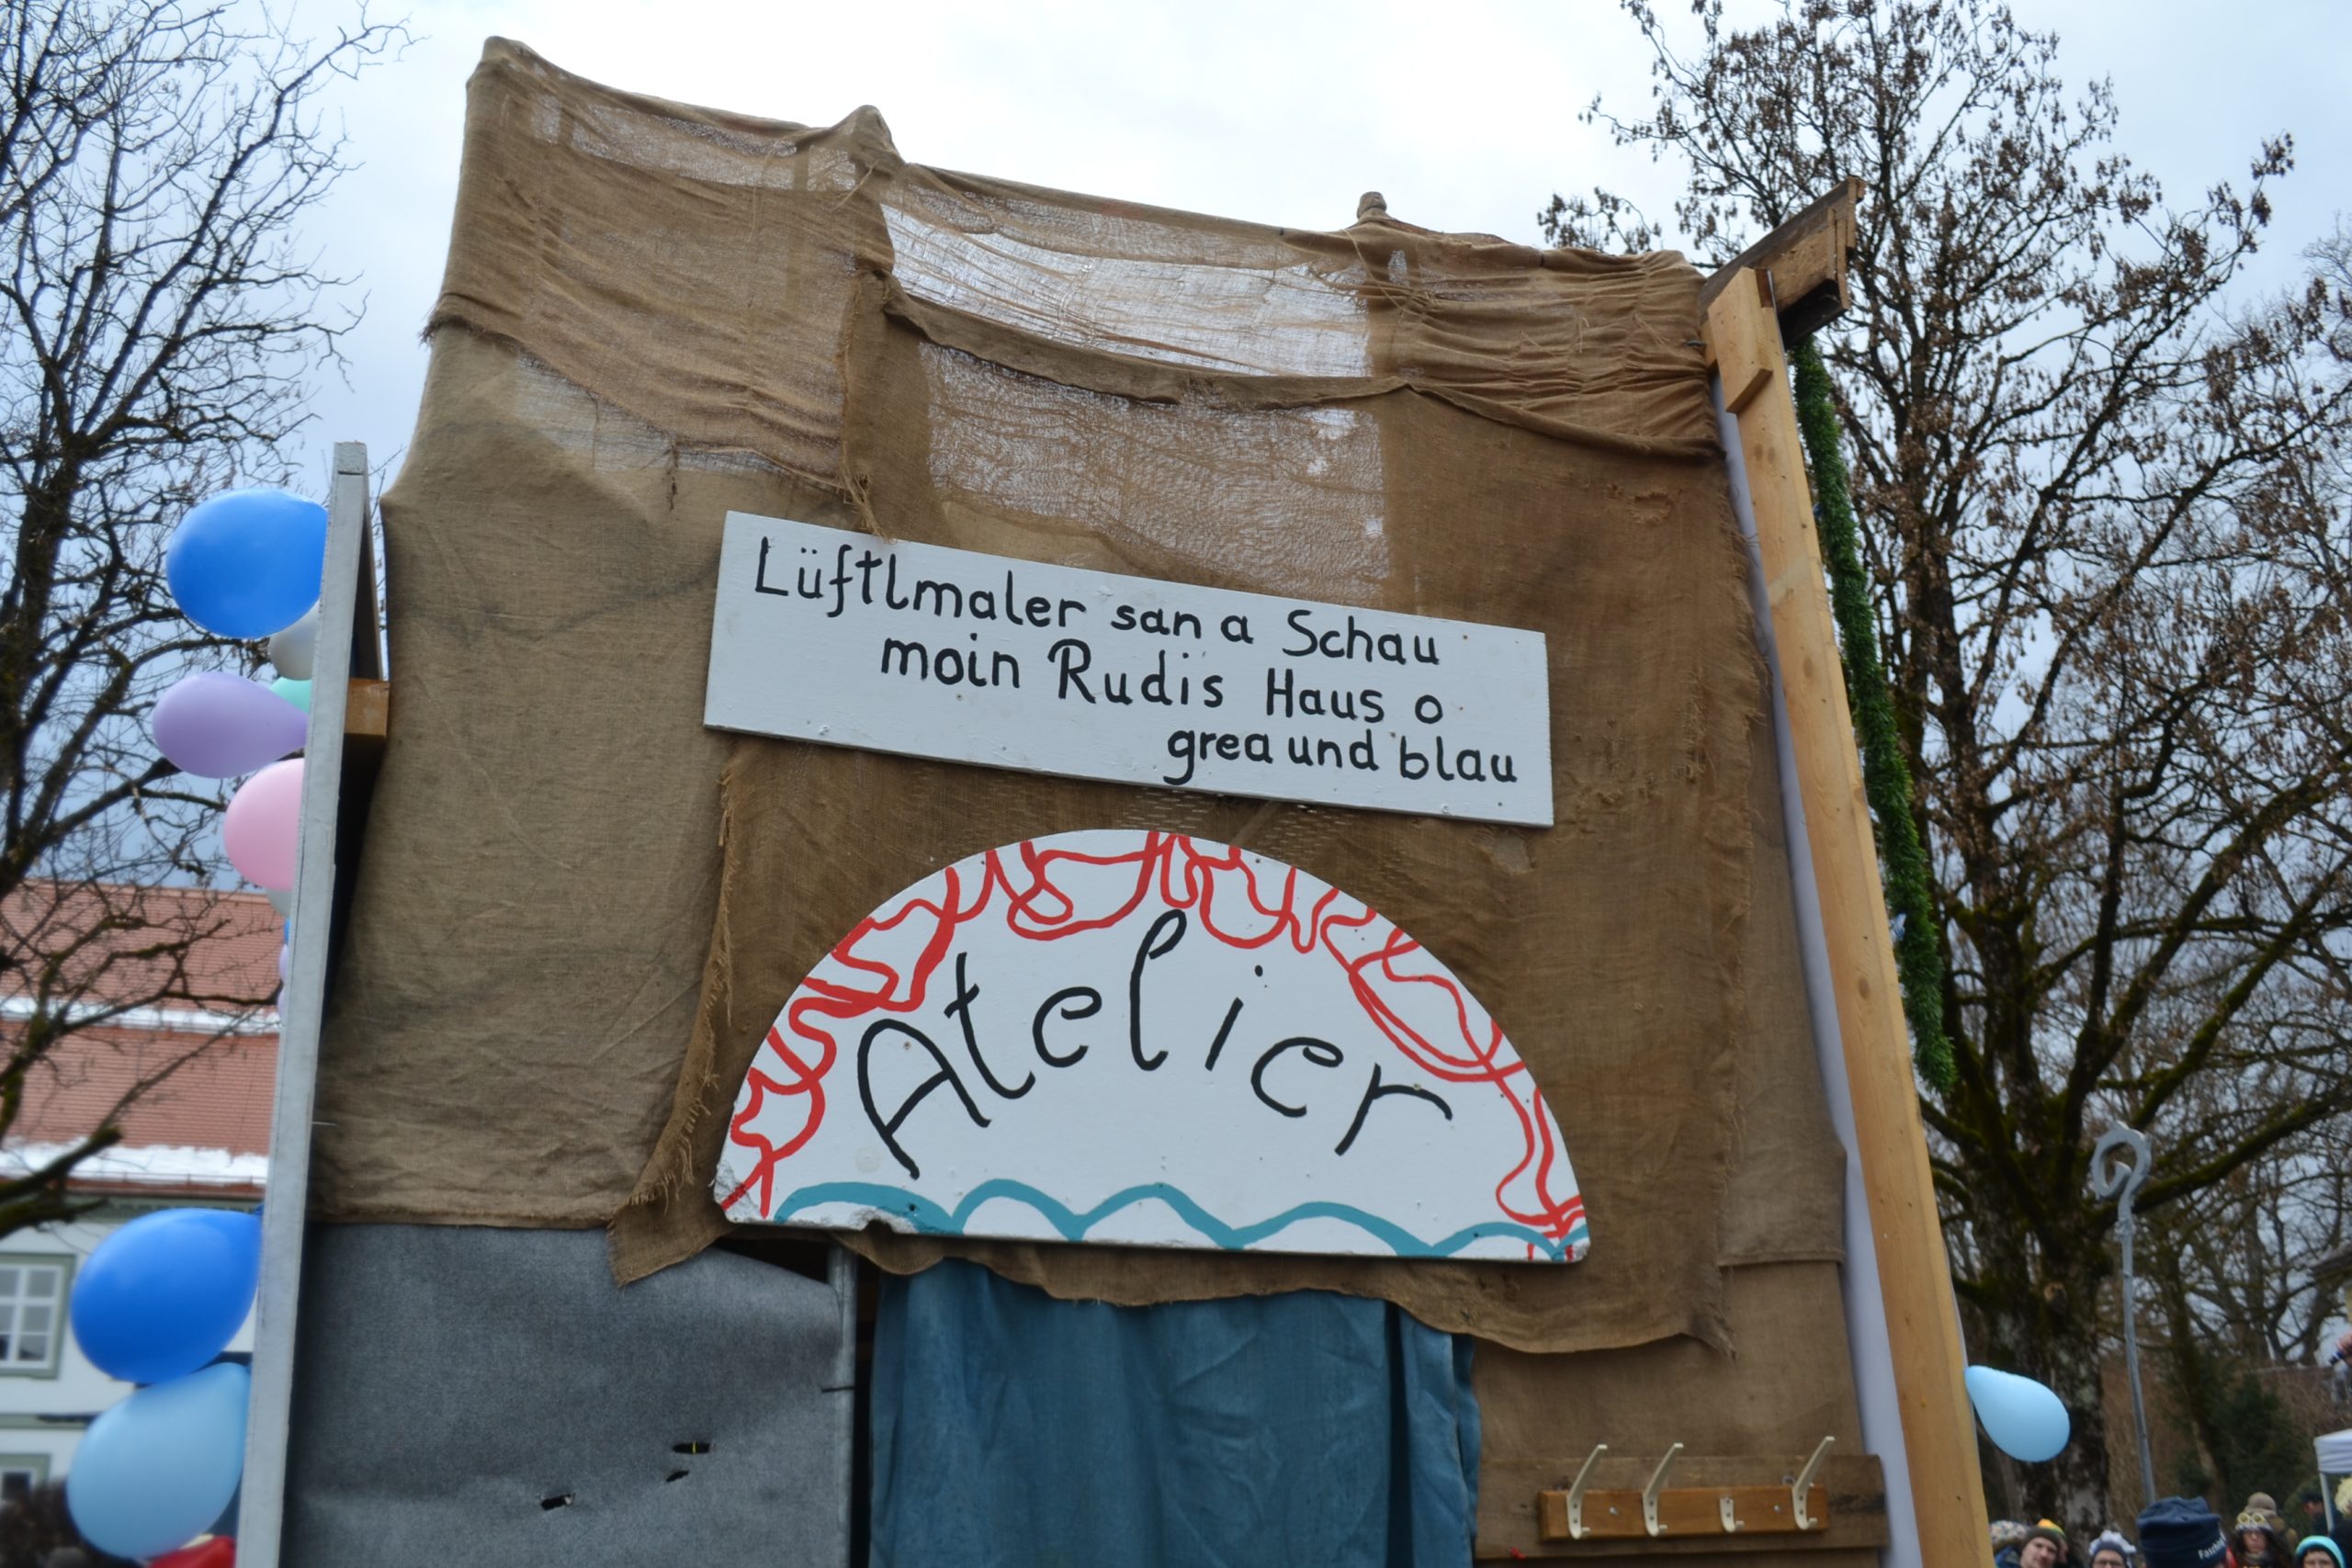 Lüftlmaler san a Schau
moin Rudis Haus o
grea und blau
Atelier